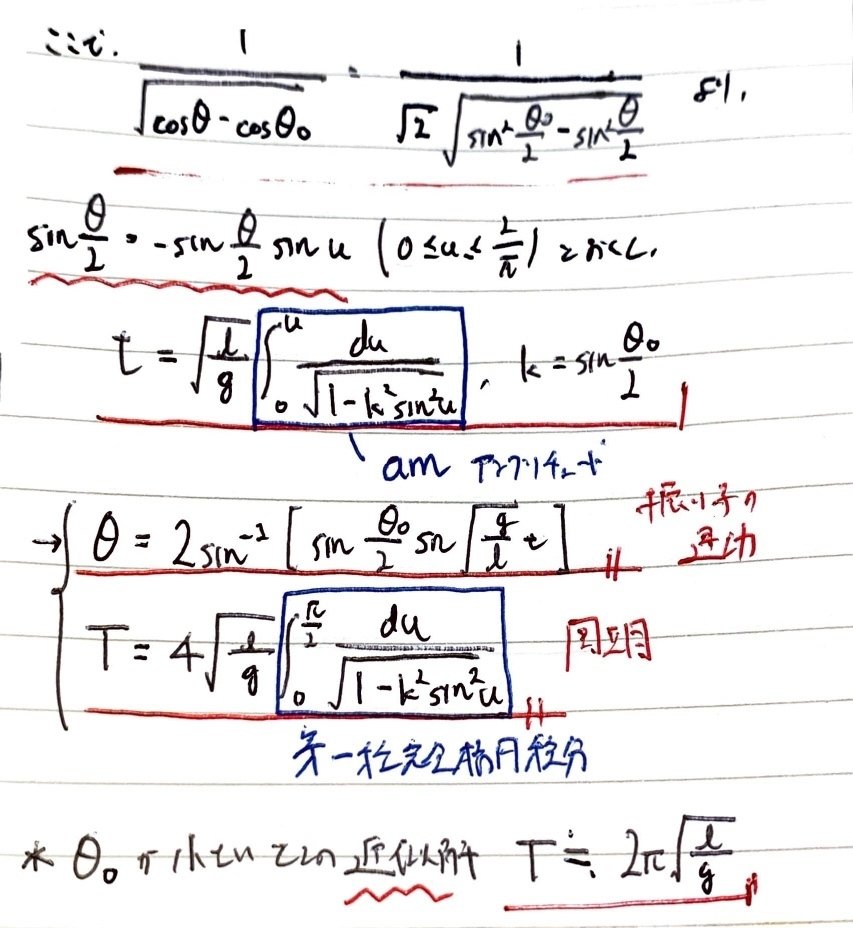 ここで. 1/√(cosθ - cosθ₀) = 1/(√2 √(sin² θ₀/2 - sin² θ/2)) より,
sin θ/2 = -sin θ/2 sin u (0 ≤ u ≤ 2/π) とおくと,
t = √(l/g) ∫₀ᵘ du/√(1-k² sin² u) , k = sin θ₀/2
am アンプリチュード
→ { θ = 2 sin⁻¹ [ sin θ₀/2 sn √(g/l) t ] 振り子の運動
T = 4√(l/g) ∫₀^(π/2) du/√(1-k² sin² u) 周期
第一種完全楕円積分
* θ₀が小さいときの近似解 T ≒ 2π√(l/g)